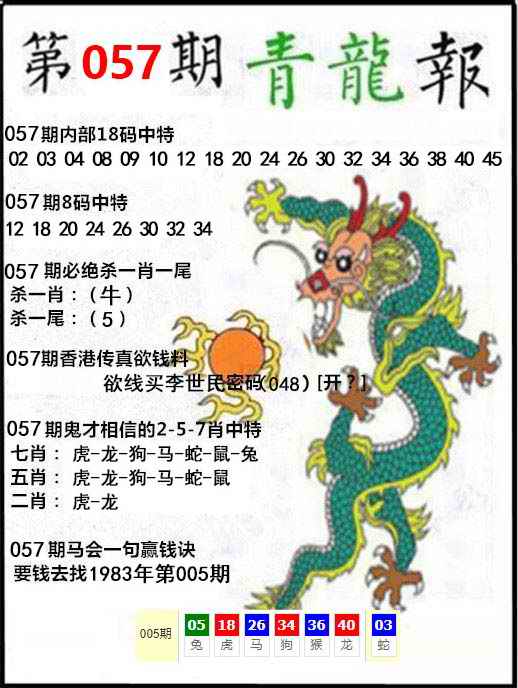 第057期青龍報
057期内部18码中特
02 03 04 08 09 10 12 18 20 24 26 30 32 34 36 38 40 45
057期8码中特
12 18 20 24 26 30 32 34
057 期必绝杀一肖一尾
杀一肖：（牛）
杀一尾：（5）
057期香港传真欲钱料
欲线买李世民密码(048）[开？]
057期鬼才相信的2-5-7肖中特
七肖：虎-龙-狗-马-蛇-鼠-兔
五肖：虎-龙-狗-马-蛇-鼠
二肖：虎-龙
057期马会一句赢钱诀
要钱去找1983年第005期
005期 05 18 26 34 36 40 03
兔 虎 马 狗 猴 龙 蛇